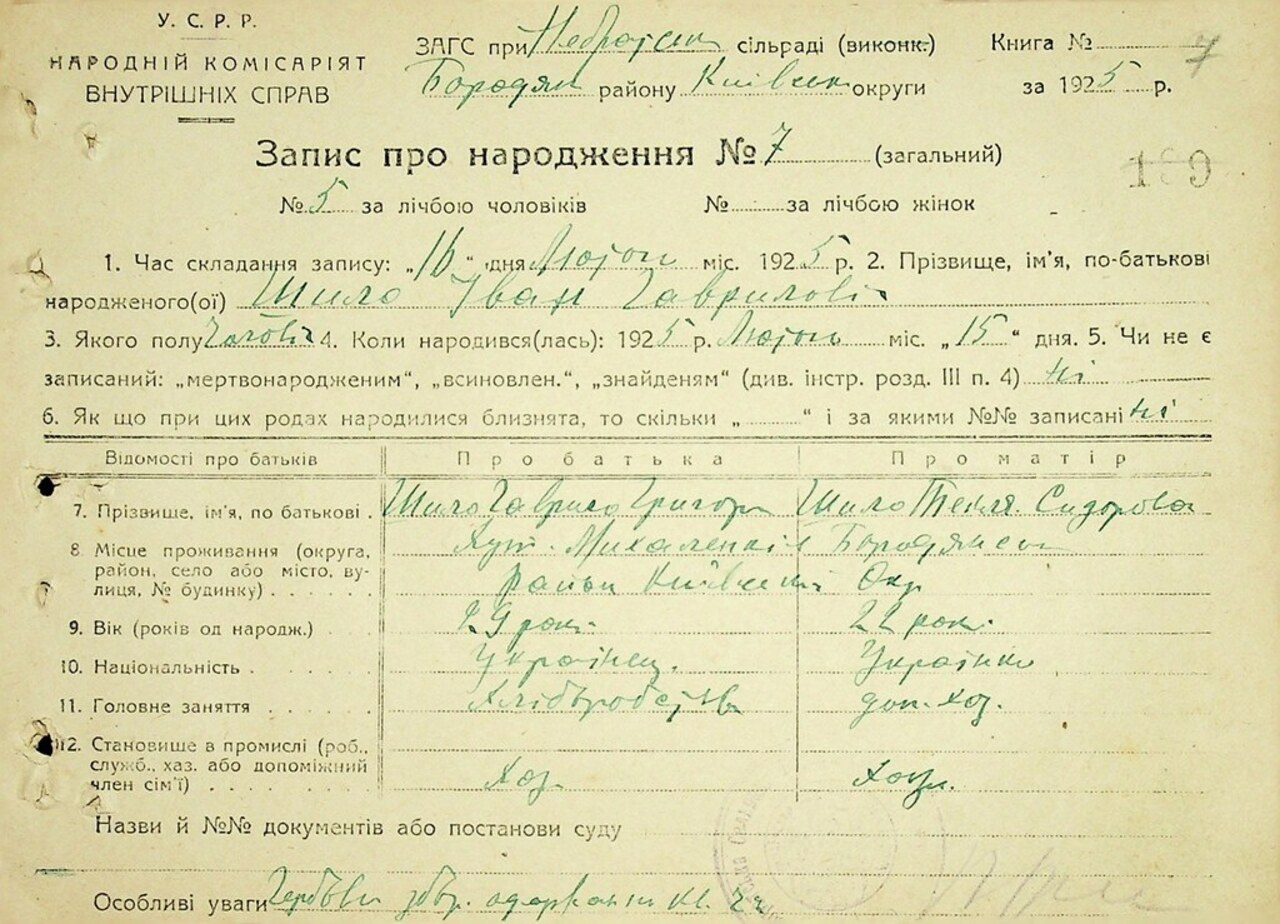 У. С. Р. Р.
НАРОДНІЙ КОМІСАРІЯТ
ВНУТРІШНІХ СПРАВ
ЗАГС при Небратськ сільраді (виконк.)
Бородян району Київськ округи
Книга №
7
за 1925 р.
Запис про народження № 7 (загальний)
189
№ 5 за лічбою чоловіків № за лічбою жінок
1. Час складання запису: „16“ дня Лютого міс. 1925 р. 2. Прізвище, ім'я, по-батькові
народженого(ої) Шило Іван Гаврилові
3. Якого полу Чолові 4. Коли народився(лась): 1925 р. Лютого міс. „15“ дня. 5. Чи не є
записаний: „мертвонародженим“, „всиновлен.“, „знайденям“ (див. інстр. розд. III п. 4) ні
6. Як що при цих родах народилися близнята, то скільки „ “ і за якими №№ записані ні
Відомості про батьків Про батька Про матір
7. Прізвище, ім'я, по батькові . Шило Гаврило Григор Шило Текля Сидорова
8 Місце проживання (округа, район, село або місто, вулиця, № будинку) . . . . . .
Хут. Михаленків Бородянськ
район Київської Окр
9. Вік (років од народж.) 29 рок. 22 рок.
10. Національність . Українец. Українка
11. Головне заняття . . . . . Хліборобств дом. хоз.
12. Становище в промислі (роб., служб., хаз. або допоміжний член сім'ї) . . . . . . . .
Хоз. Хоз.
Назви й №№ документів або постанови суду
Особливі уваги Гербовий збір одержани кв. 22